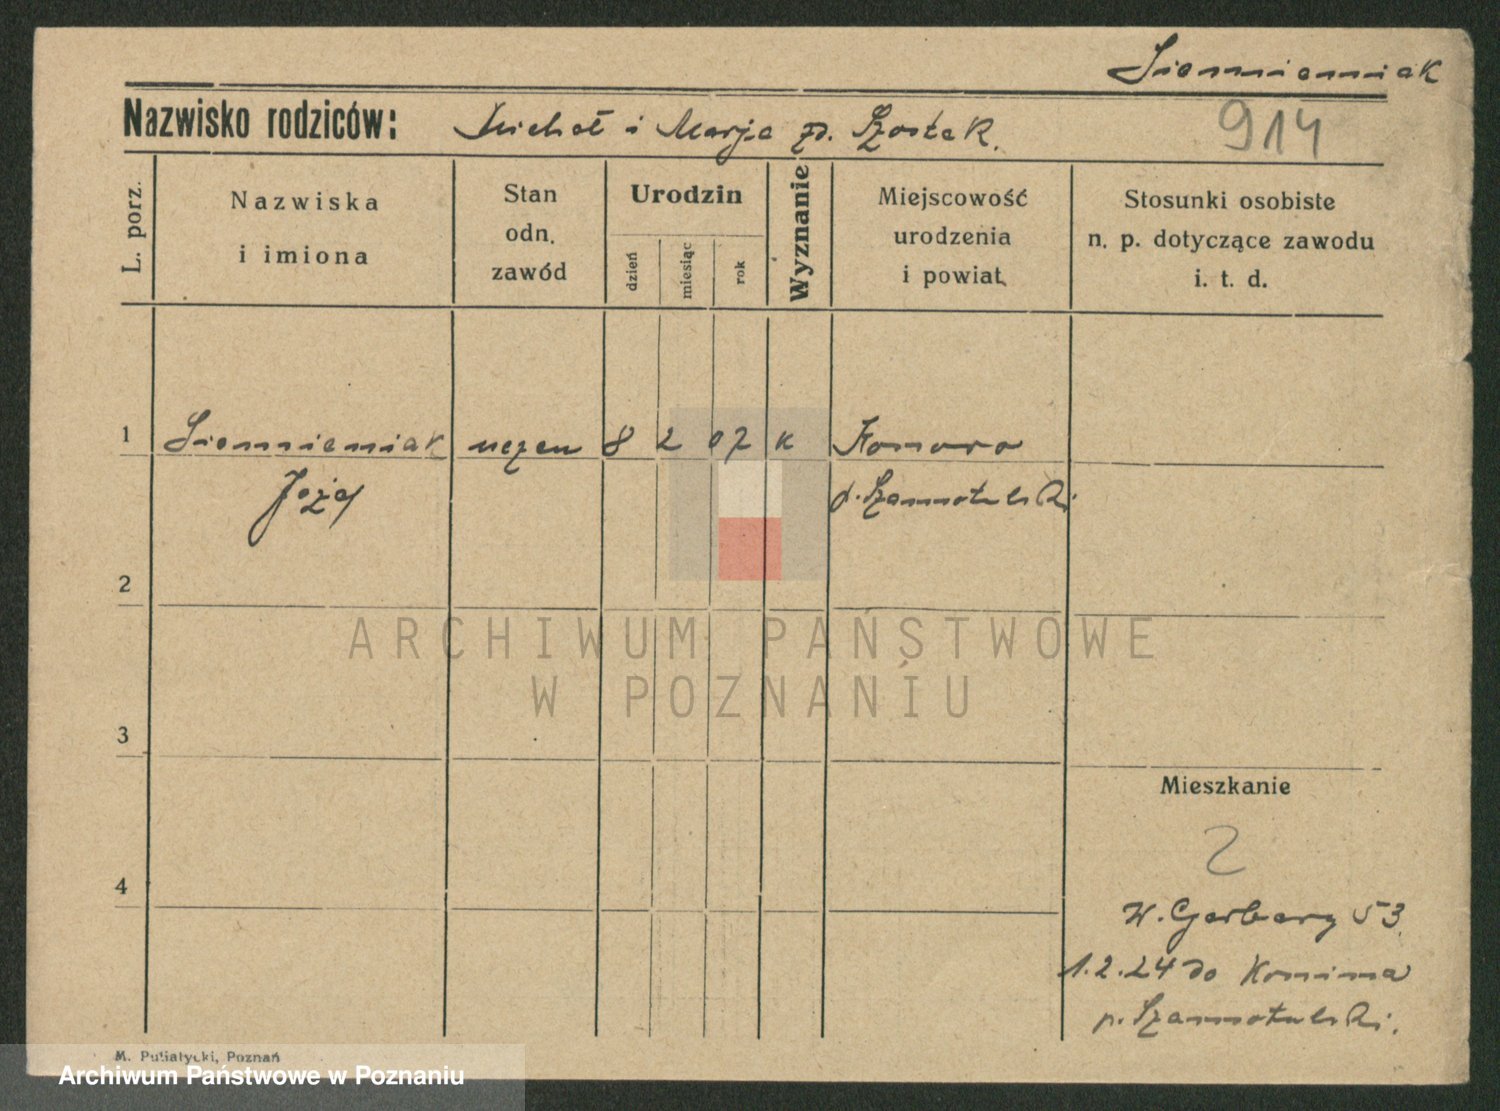 Siemieniak
Nazwisko rodziców: Michał i Marja zd. Szostak.
914
L. porz.
Nazwiska
i imiona
Stan
odn.
zawód
Urodzin
dzień
miesiąc
rok
Wyznanie
Miejscowość
urodzenia
i powiat
Stosunki osobiste
n. p. dotyczące zawodu
i. t. d.
1 Siemieniak uczeń 8 2 07 k Konowo
Józef p. Szamotulski
2
ARCHIWUM PAŃSTWOWE
W POZNANIU
3
Mieszkanie
2
4
W. Garbary 53
1.2.24 do Konina
p. Szamotulski.
M. Putiatycki, Poznań
Archiwum Państwowe w Poznaniu